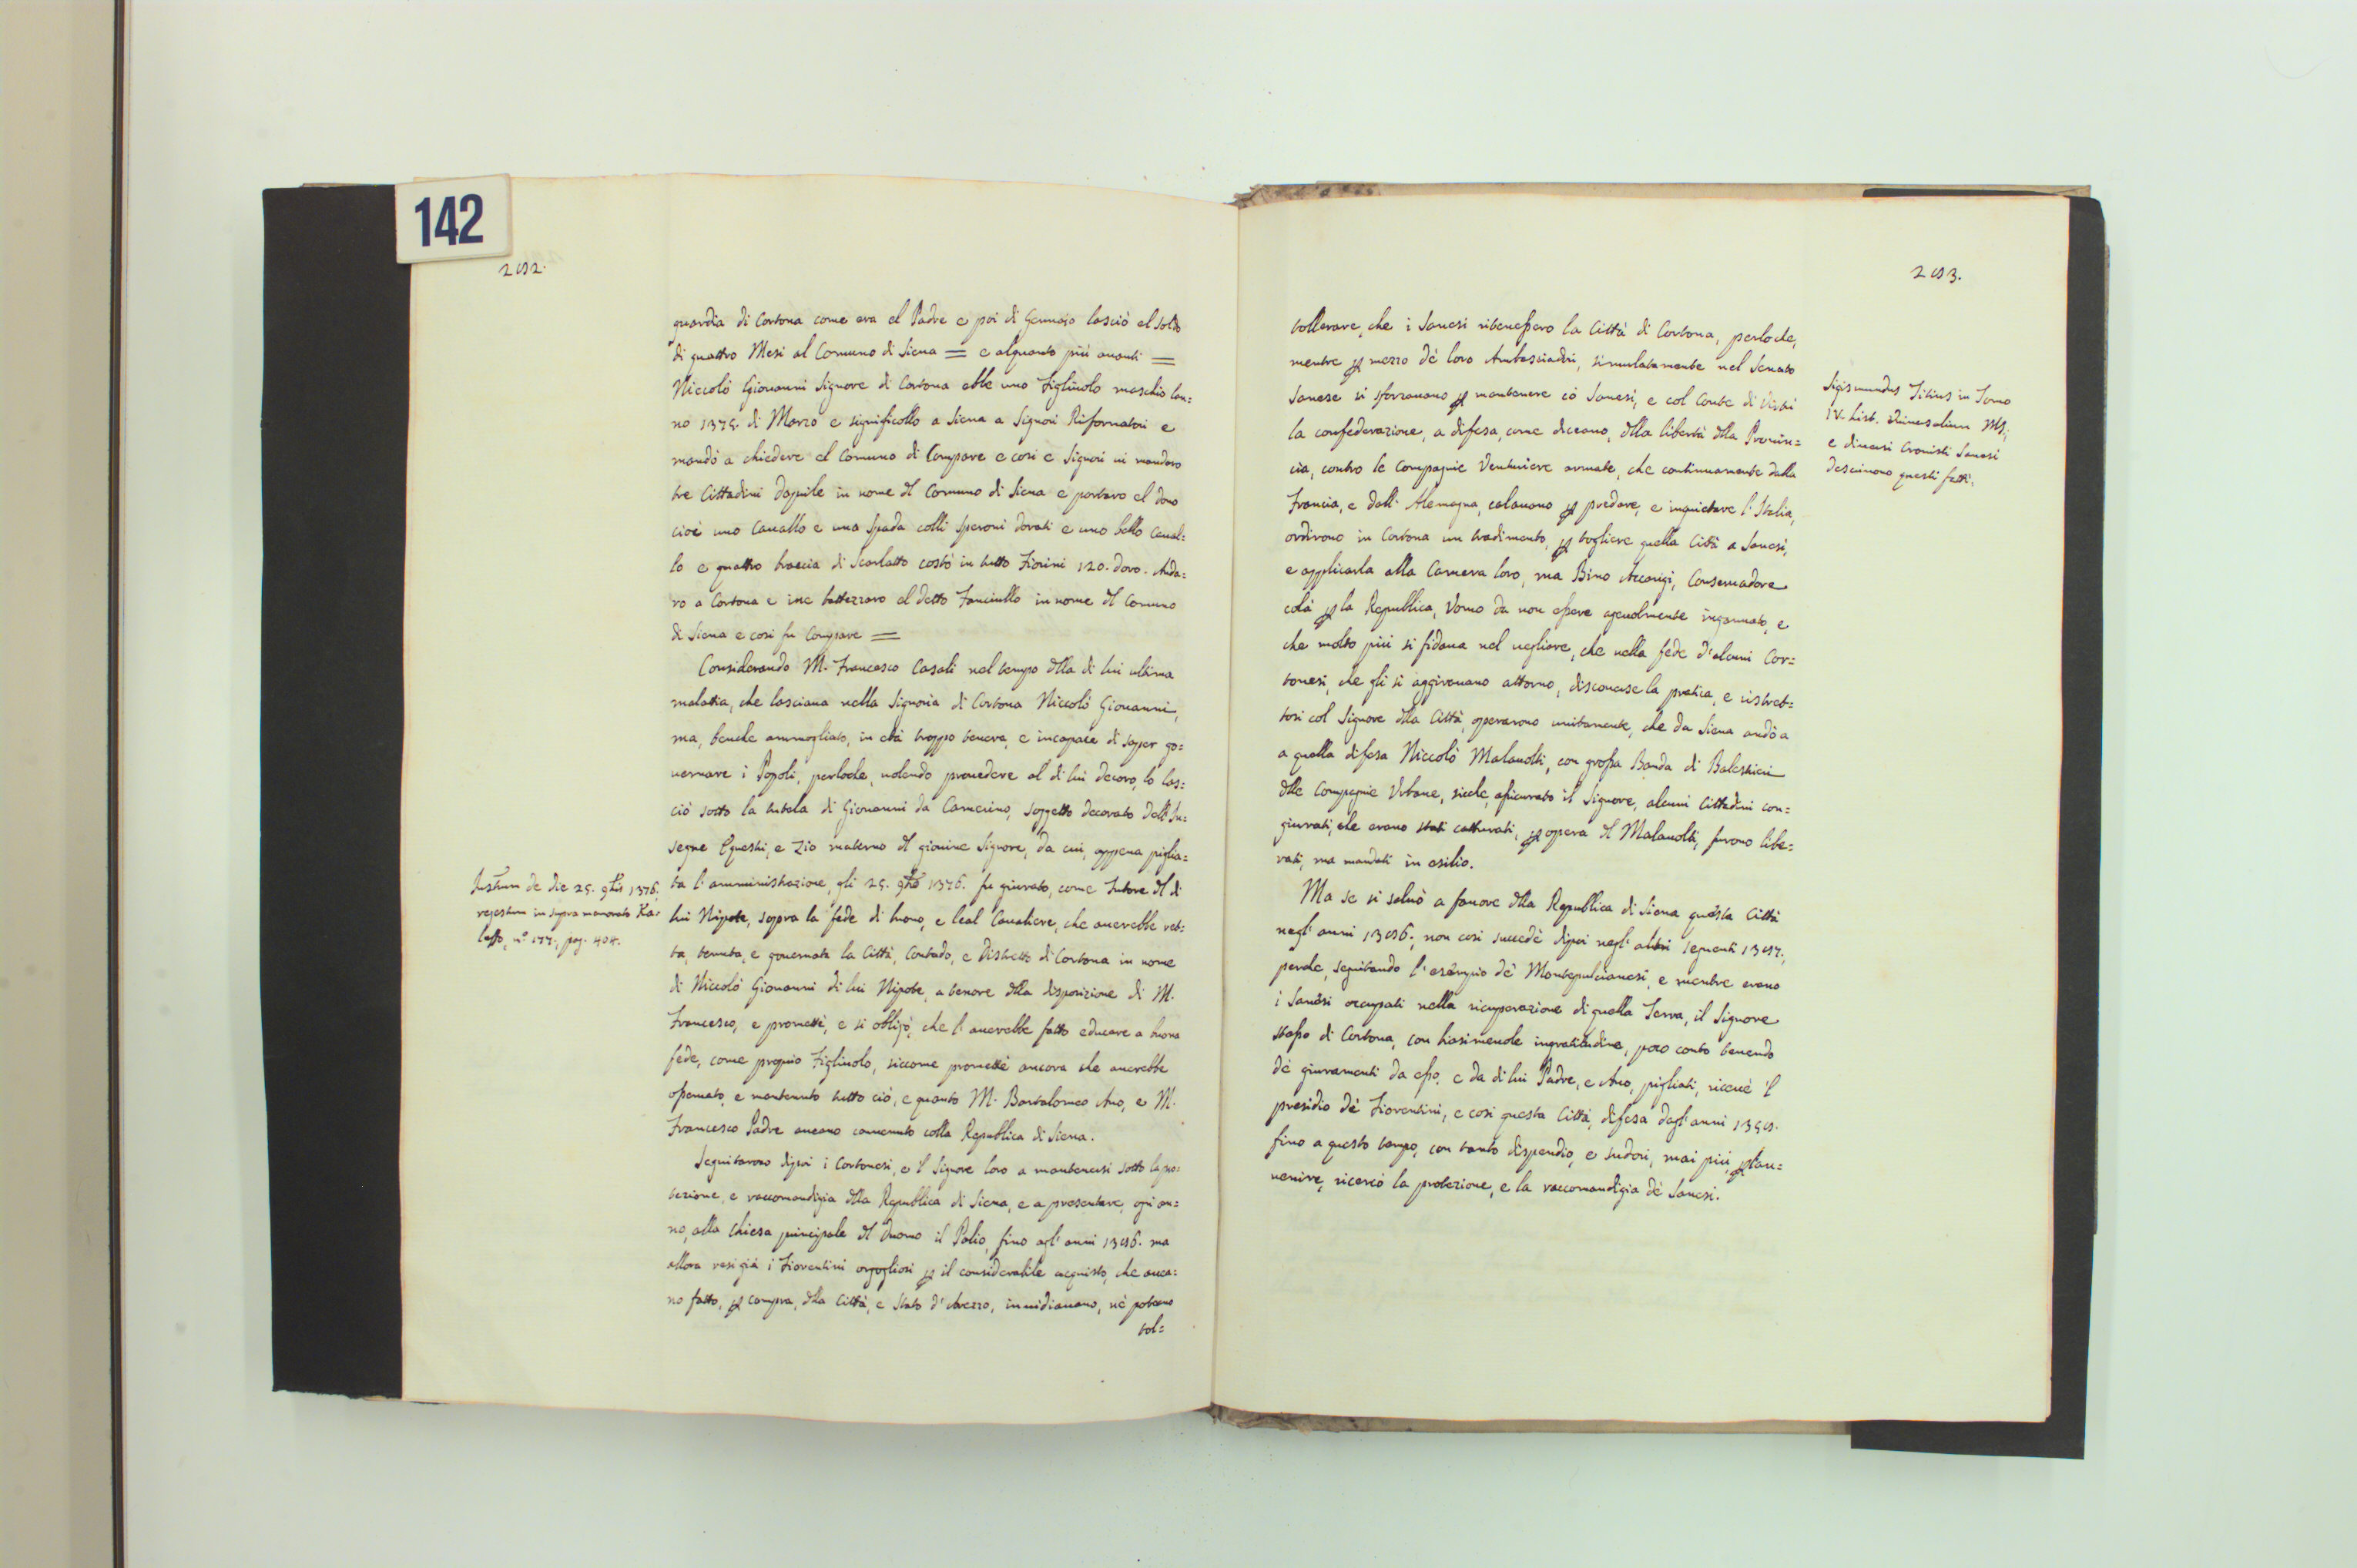 142
292.
guardia di Cortona come era el Padre e poi di Gennaio lasciò el soldo
di quattro Mesi al Comuno di Siena = e alquanto più avanti =
Niccolò Giovanni Signore di Cortona ebbe uno figliuolo maschio lan=
no 1375. di Marzo e significollo a Siena a Signori Riformatori e
mandò a chiedere el Comuno di Compare e così e Signori vi mandoro
tre Cittadini dapuile in nome dl Comuno di Siena e portaro el dono
cioè uno Cavallo e una Spada colli Speroni dorati e uno bello Caval=
lo e quattro braccia di Scarlatto costò in tutto Fiorini 120. doro. Anda=
ro a Cortona e ine battezzaro el detto Fanciullo in nome dl Comuno
di Siena e così fu Compare =
Considerando M. Francesco Casali nel tempo dlla di lui ultima
malattia, che lasciava nella Signoria di Cortona Niccolò Giovanni,
ma, benche ammogliato, in età troppo tenera, e incapace di saper go=
vernare i Popoli, perloche, volendo provedere al di lui decoro, lo las=
ciò sotto la tutela di Giovanni da Camerino, soggetto decorato dell'In=
segne Equestri, e Zio materno dl giovine Signore, da cui, appena piglia=
ta l'amministrazione, gli 25. 9bre 1376. fu giurato, come Tutore dl di
lui Nipote, sopra la fede di buono, e leal Cavaliere, che averebbe ret=
ta, tenuta, e governata la Città, Contado, e Distretto di Cortona in nome
di Niccolò Giovanni di lui Nipote, a tenore dlla disposizione di M.
Francesco, e promettè, e si obligò, che l'averebbe fatto educare a buona
fede, come proprio Figliuolo, siccome promettè ancora che averebbe
osservato, e mantenuto tutto ciò, e quanto M. Bartalomeo Avo, e M.
Francesco Padre aveano convenuto colla Republica di Siena.
Seguitarono dipoi i Cortonesi, e 'l Signore loro a mantenersi sotto la pro=
tezione, e raccomandigia dlla Republica di Siena, e a presentare, ogni an=
no, alla Chiesa principale dl Duomo il Palio, fino agl'anni 1396. ma
allora resi già i Fiorentini orgogliosi p il considerabile acquisto, che avea=
no fatto, p compra, dlla Città, e Stato d'Arezzo, invidiavano, nè poteano
tol=
Instrum de die 25. 9bris 1376,
regestum in supra memorato Ka=
leffo, n.º 177., pag. 404.
293.
tollerare, che i Sanesi ritenessero la Città di Cortona, perloche,
mentre p mezzo dè loro Ambasciadri, simulatamente nel Senato
Sanese si sforzavano p mantenere cò Sanesi, e col Conte di Virtù
la confederazione, a difesa, come diceano, dlla libertà dlla Provin=
cia, contro le Compagnie Venturiere armate, che continuamente dalla
Francia, e dall'Alemagna, calavano p predare, e inquietare l'Italia,
ordirono in Cortona un tradimento, p togliere quella Città a Sanesi,
e applicarla alla Camera loro, ma Bino Accarigi, Conservadore
colà p la Republica, Uomo da non essere agevolmente ingannato, e
che molto più si fidava nel vegliare, che nella fede d'alcuni Cor=
tonesi, che gli si aggiravano attorno, disconcise la pratica, e ristret=
tosi col Signore dlla Città, operarono unitamente, che da Siena andò a
a quella difesa Niccolò Malavolti, con grossa Banda di Balestrieri
dlle Compagnie Urbane, sicche, assicurato il Signore, alcuni Cittadini con=
giurati, che erano stati catturati, p opera dl Malavolti, furono libe=
rati, ma mandati in esilio.
Ma se si salvò a favore dlla Republica di Siena questa Città
negl'anni 1396., non così succedè dipoi negl'altri seguenti 1397.,
perche, seguitando l'esèmpio dè Montepulcianesi, e mentre erano
i Sanesi occupati nella ricuperazione di quella Terra, il Signore
stesso di Cortona, con biasimevole ingratitudine, poco conto tenendo
dè giuramenti da esso, e da di lui Padre, e Avo, pigliati, ricevè 'l
presidio dè Fiorentini, e così questa Città, difesa dagl'anni 1359.
fino a questo tempo, con tanto dispendio, e sudori, mai più, p l'av=
venire, ricercò la protezione, e la raccomandigia dè Sanesi.
Sigismundus Titius in Tomo
IV. hist. MS;
e diversi Cronisti Sanesi
descrivono questi fatti.